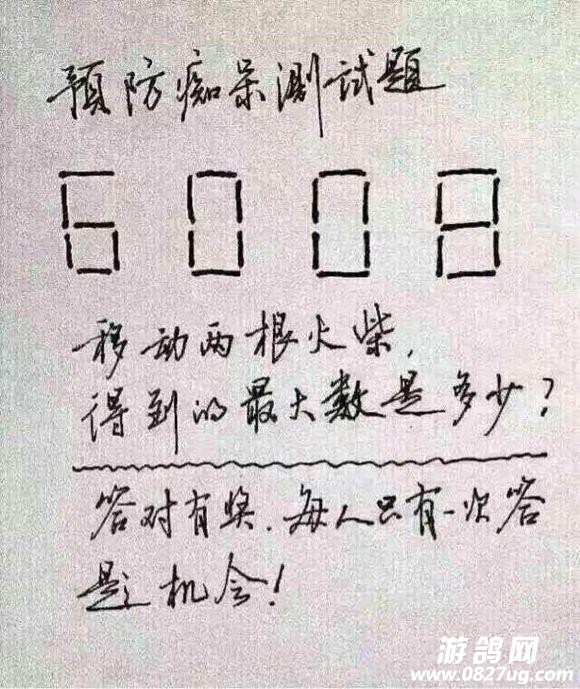 预防痴呆测试题
6008
移动两根火柴,
得到的最大数是多少?
答对有奖.每人只有一次答
题机会!
游鸽网
www.0827ug.com